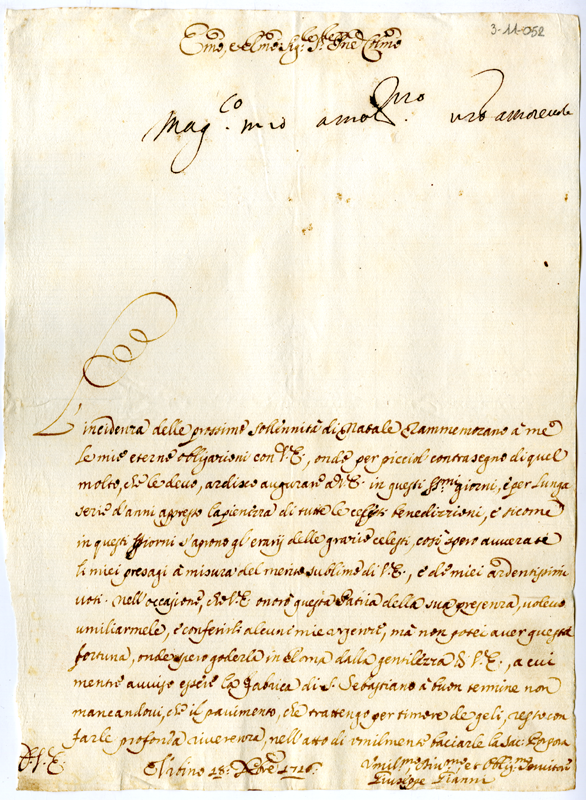 3-11-052
Emo, e Rmo Sig.re Sig.re Pne Clmo
Mag.co mio amo. vro amorevole
L'incidenza delle prossime sollennità di Natale rammemorano à me
le mie eterne obligazioni con V.E., onde per picciol contrasegno di quel
molto, che le devo, ardisco augurare à V.E. in questi SSmi giorni, e per lunga
serie d'anni appresso la pienezza di tutte le celesti benedizzioni, e sicome
in questi giorni s'aprono gl'erarij delle grazie celesti, così spero avverate
li miei presagi à misura del merito sublime di V.E., e de miei ardentissimi
voti. Nell'occasione, che V.E. onorò questa Patria della sua presenza, volevo
umiliarmele, e conferirli alcune mie urgenze, mà non potei aver questa
fortuna, onde spero goderla in Roma dalla gentilezza di V.E., a cui
mentre avviso essere la fabrica di S. Sebastiano à buon termine non
mancandovi, che il pavimento, che trattengo per timore de geli, resto con
farle profonda riverenza, nell'atto di umilmente baciarle la Sac. Porpora
D.V.E. Urbino 18: Xbre 1716.
Umilmo Divmo et Obligmo Servitore
Giuseppe